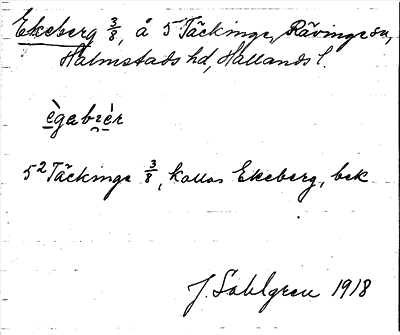 Ekeberg 3/8, å 5 Täckinge, Rävinge sn,
Halmstads hd, Hallands l.
ègabrèr
5² Täckinge 3/8, kallas Ekeberg, bek.
J. Sahlgren 1918